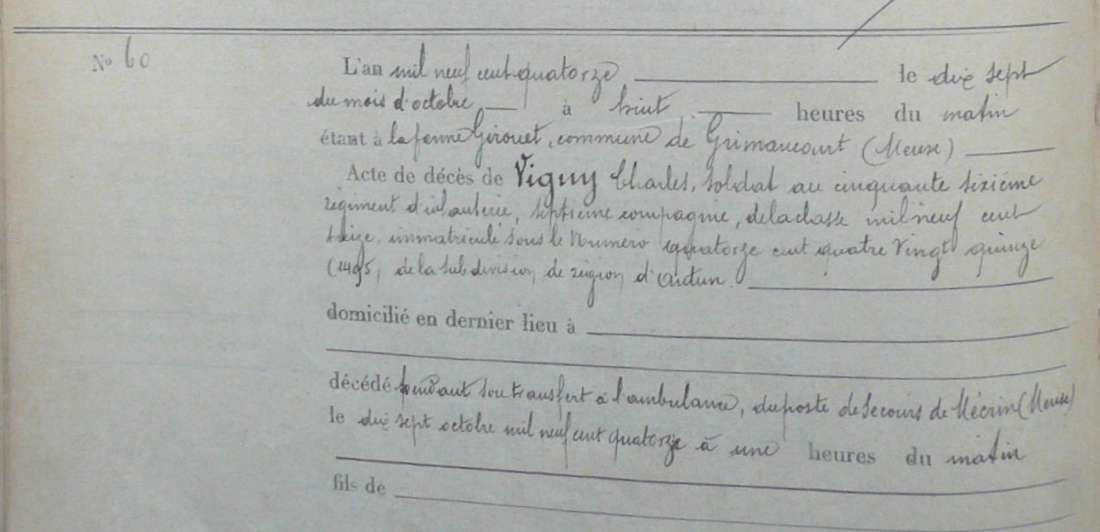 No 60
L'an mil neuf cent quatorze le dix sept
du mois d'octobre à huit heures du matin
étant à la ferme Girouet, commune de Grimaucourt (Meuse)
Acte de décès de Vigny Charles, soldat au cinquante sixième
régiment d'infanterie, septième compagnie, de la classe mil neuf cent
treize, immatriculé sous le Numéro quatorze cent quatre vingt quinze
(1495, de la subdivision de région d'Autun.
domicilié en dernier lieu à
décédé pendant son transfert à l'ambulance, du poste de secours de Mécrin (Meuse)
le dix sept octobre mil neuf cent quatorze à une heures du matin
fils de